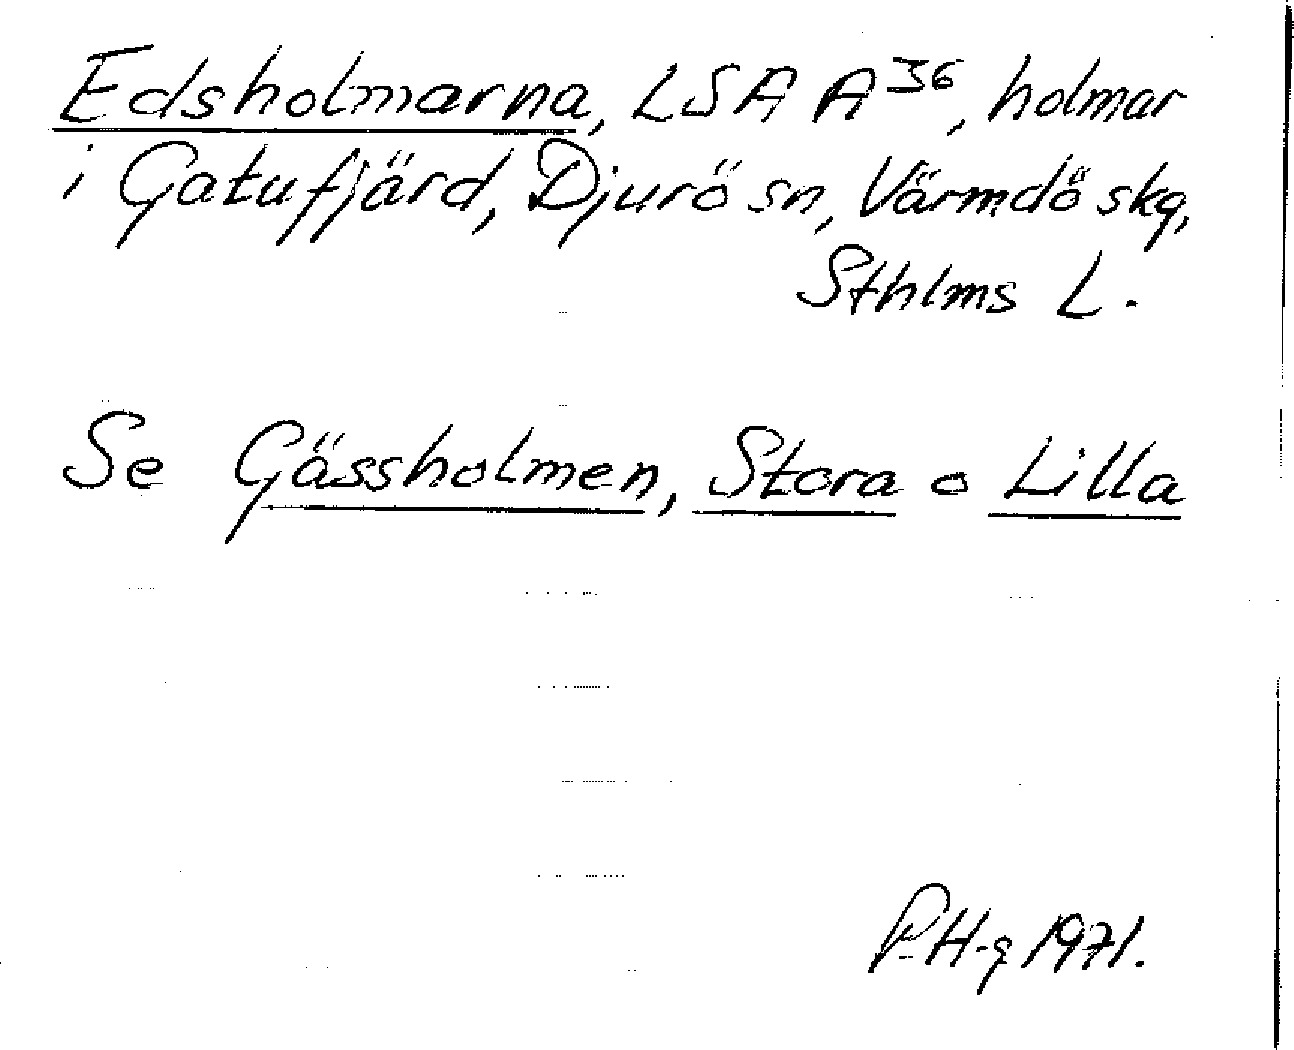 Edsholmarna, LSA A36, holmar
i Gatufjärd, Djurö sn, Värmdö skg,
Sthlms L.
Se Gässholmen, Stora o Lilla
P.H-g 1971.